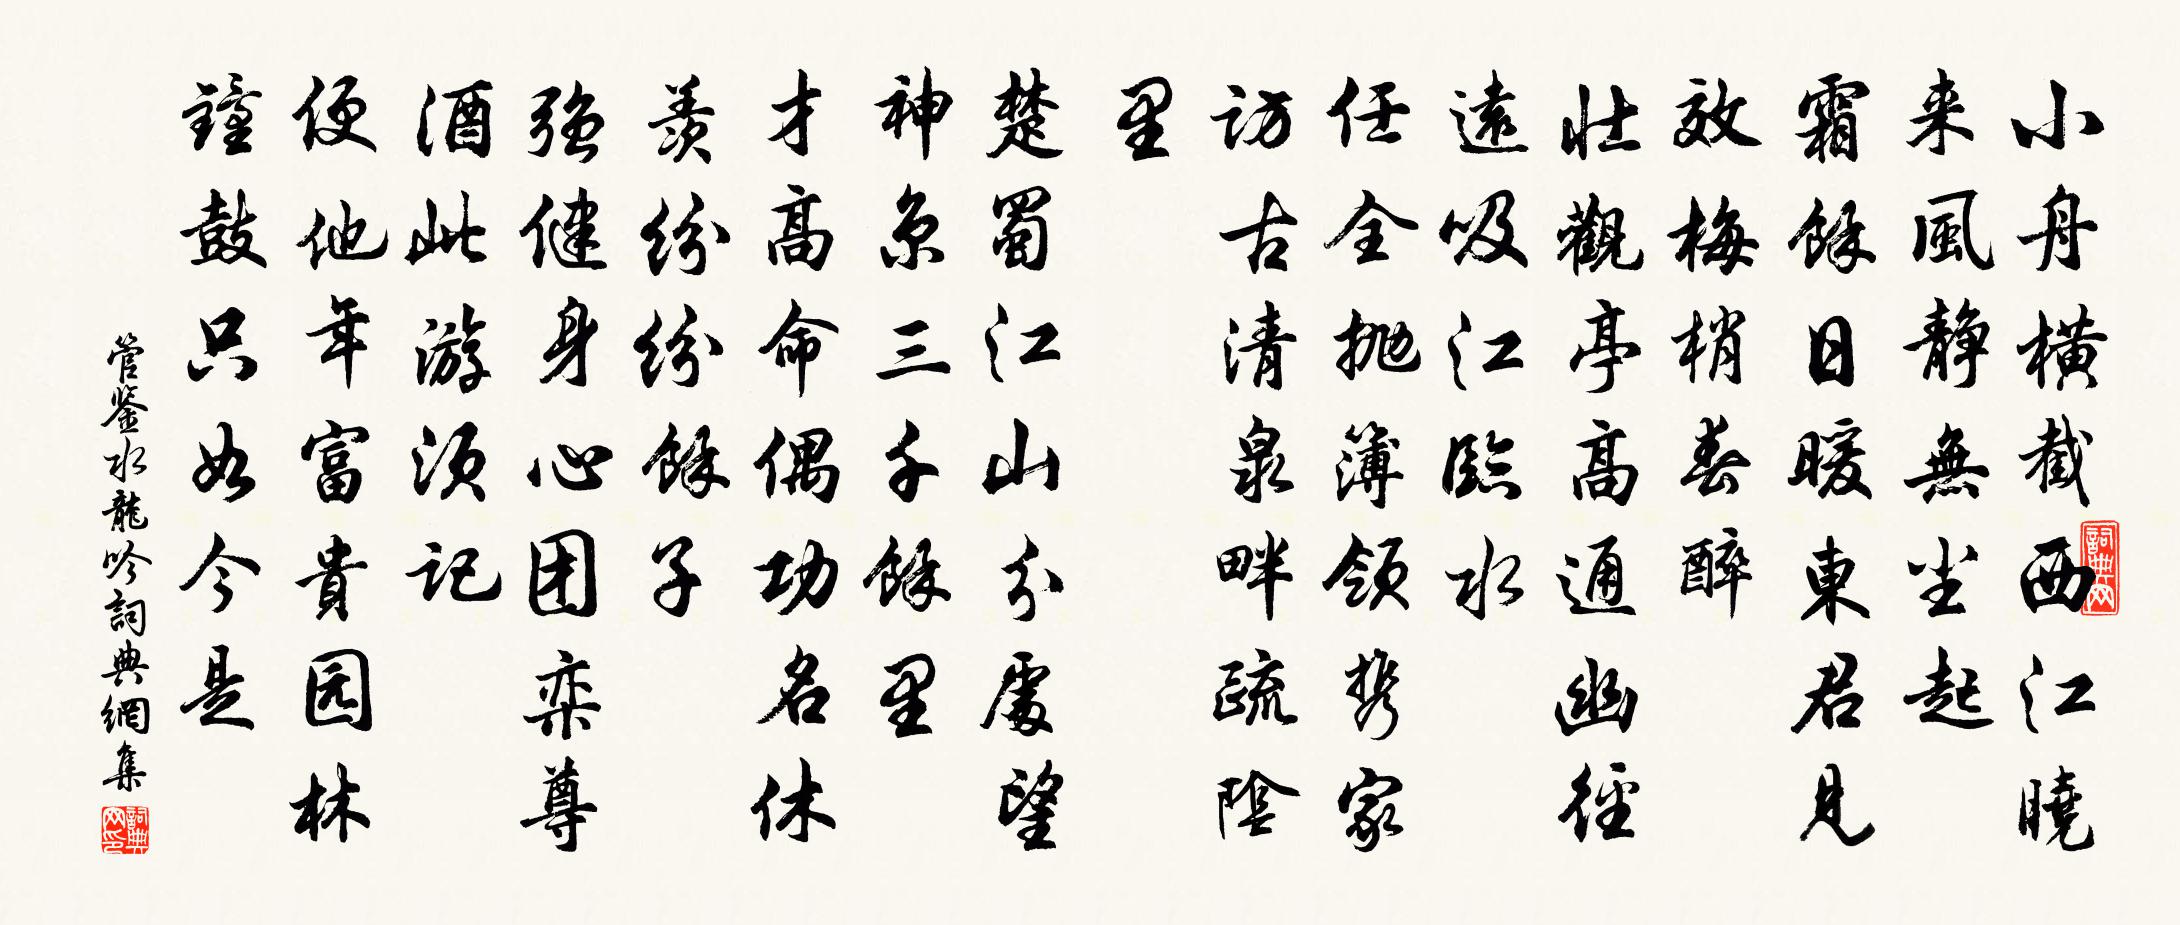 小舟橫截西江曉
来風静無尘起
霜餘日暖東君見
效梅梢春醉
壮觀亭高通幽徑
遠吸江臨水
任全抛簿領携家
訪古清泉畔疏陰
里
楚蜀江山分處望
神京三千餘里
才高命偶功名休
羨紛紛餘子
强健身心团栾尊
酒此游须记
便他年富貴园林
鐘鼓只如今是
管鉴水龍吟詞典網集
詞典网
詞典网印